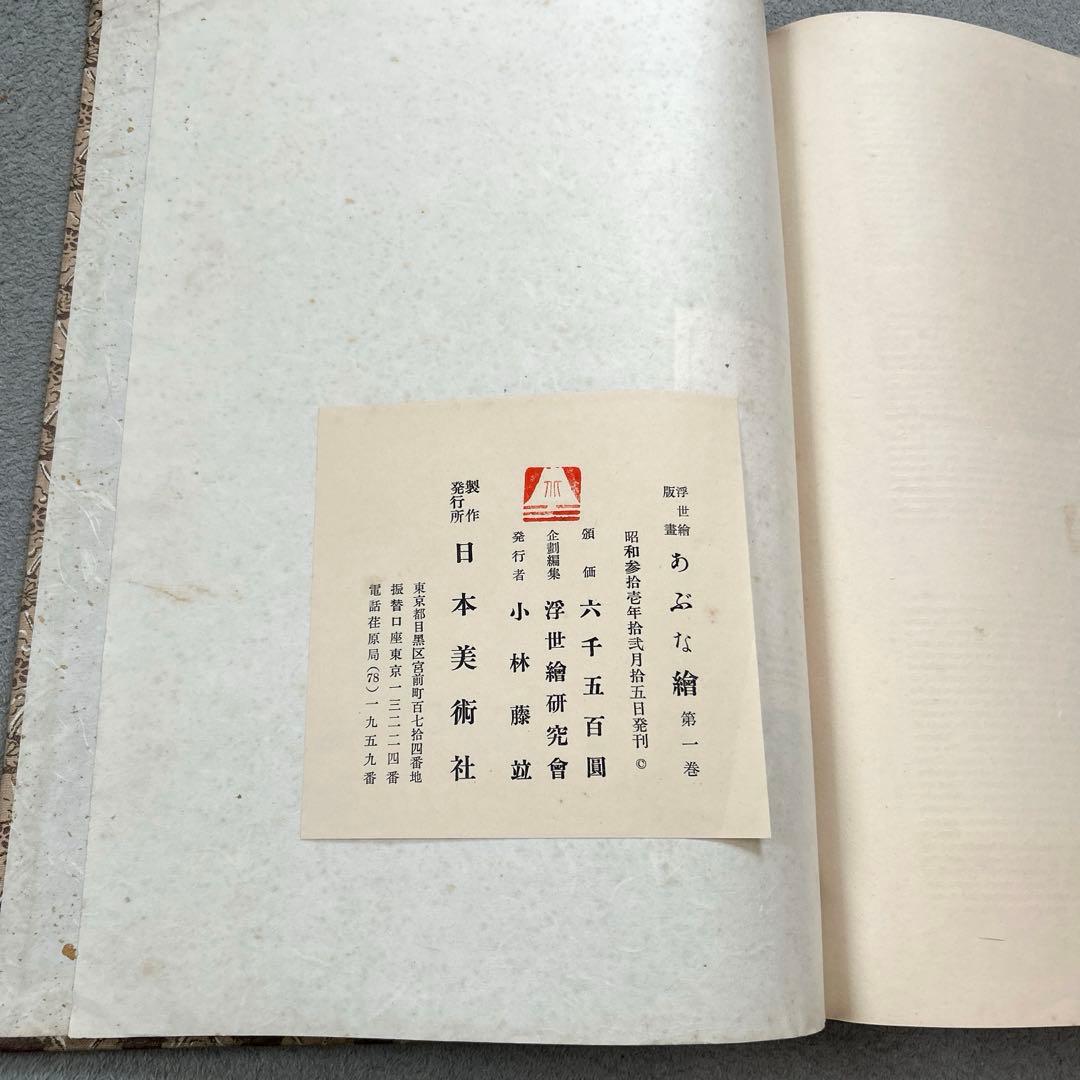 浮世繪版畫 あぶな繪 第一巻
昭和参拾壱年拾弐月拾五日発刊 ©
頒価 六千五百圓
企劃編集 浮世繪研究會
発行者 小林藤竝
製作発行所 日本美術社
東京都目黒区宮前町百七拾四番地
振替口座東京一三二二四番
電話荏原局(78)一九五九番